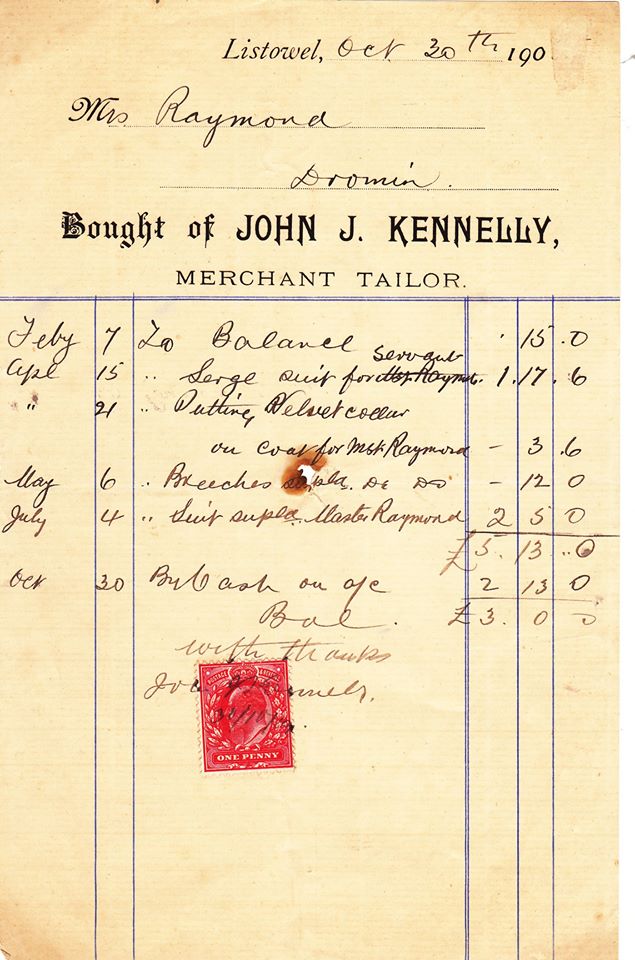 Listowel, Oct 30th 190
Mrs Raymond
Dromin.
Bought of JOHN J. KENNELLY,
MERCHANT TAILOR.
Feby 7 To Balance . 15 . 0
servant
Apl 15 " Serge suit for Mstr Raymd. 1 . 17 . 6
" 21 " Putting Velvet collar
on coat for Mstr Raymond - 3 . 6
May 6 " Breeches supld. Do Do - 12 0
July 4 " Suit supld. Master Raymond 2 5 0
£5 . 13 .. 0
Oct 30 By Cash on a/c 2 13 0
Bal . £3 . 0 0
with thanks
POSTAGE REVENUE
30/10/
ONE PENNY